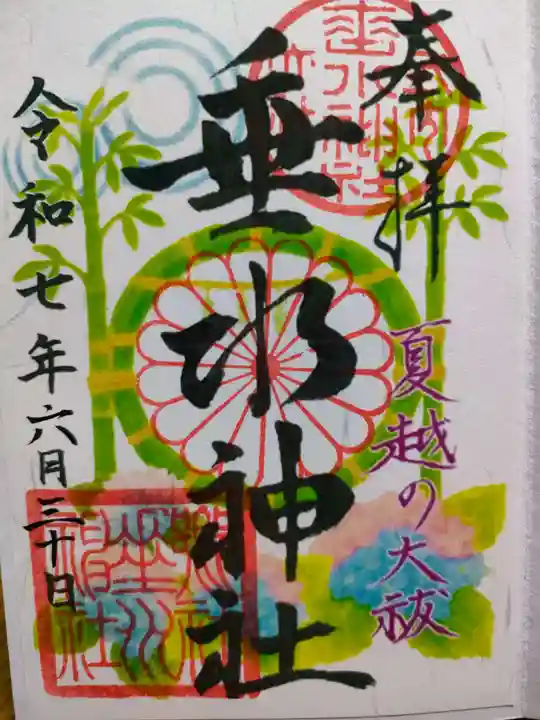 奉拝
夏越の大祓
垂水神社
令和七年六月三十日